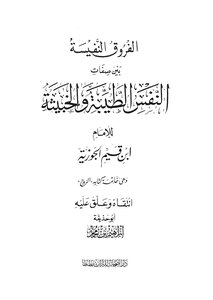 الفروق النفيسة
بين صفات
النفس الطيبة والخبيثة
للإمام
ابن قيم الجوزية
وهي خاتمة كتابه «الروح»
انتقاه وعلق عليه
أبو حذيفة
إبراهيم بن محمد
دار الصحابة للتراث بطنطا